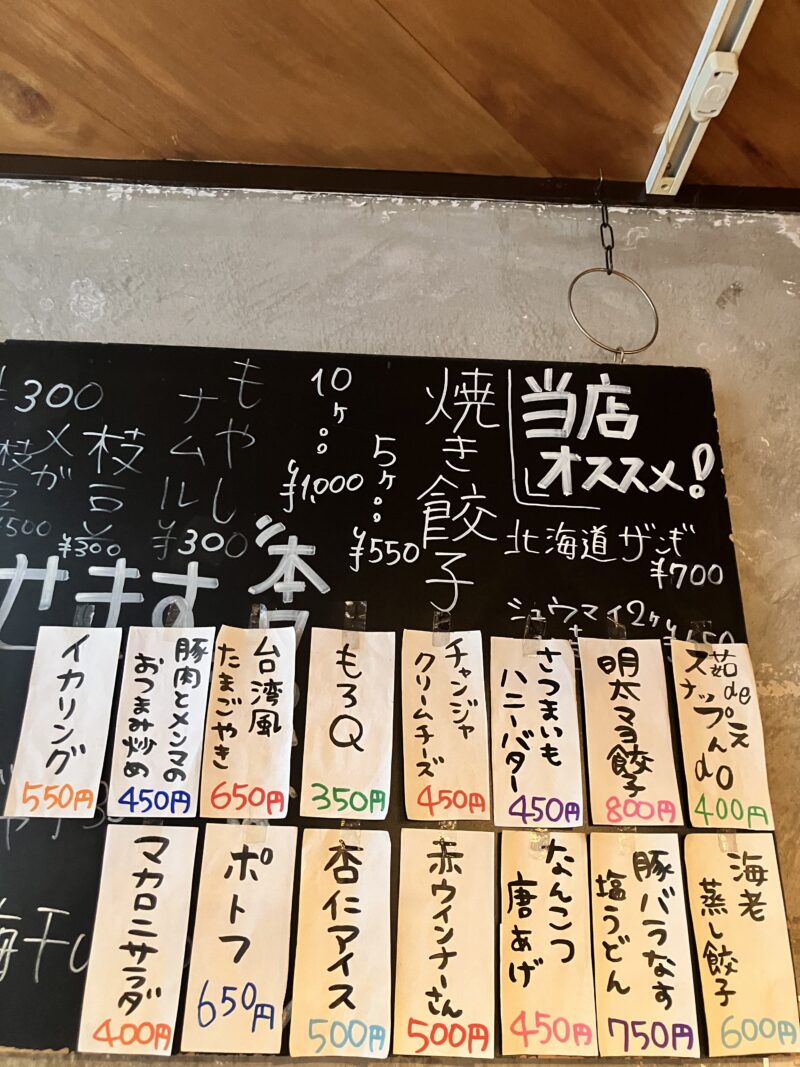 当店
オススメ!
北海道ザンギ
¥700
シュウマイ2ヶ
焼き餃子
5ヶ。。
¥550
10ヶ。。
¥1,000
もやし
ナムル
¥300
枝豆
¥300
¥300
茹de
スナップえ
んdo
400円
明太マヨ餃子
800円
さつまいも
ハニーバター
450円
チャンジャ
クリームチーズ
450円
もろQ
350円
台湾風
たまごやき
650円
豚肉とメンマの
おつまみ炒め
450円
イカリング
550円
海老
蒸し餃子
600円
豚バラなす
塩うどん
750円
なんこつ
唐あげ
450円
赤ウインナーさん
500円
杏仁アイス
500円
ポトフ
650円
マカロニサラダ
400円